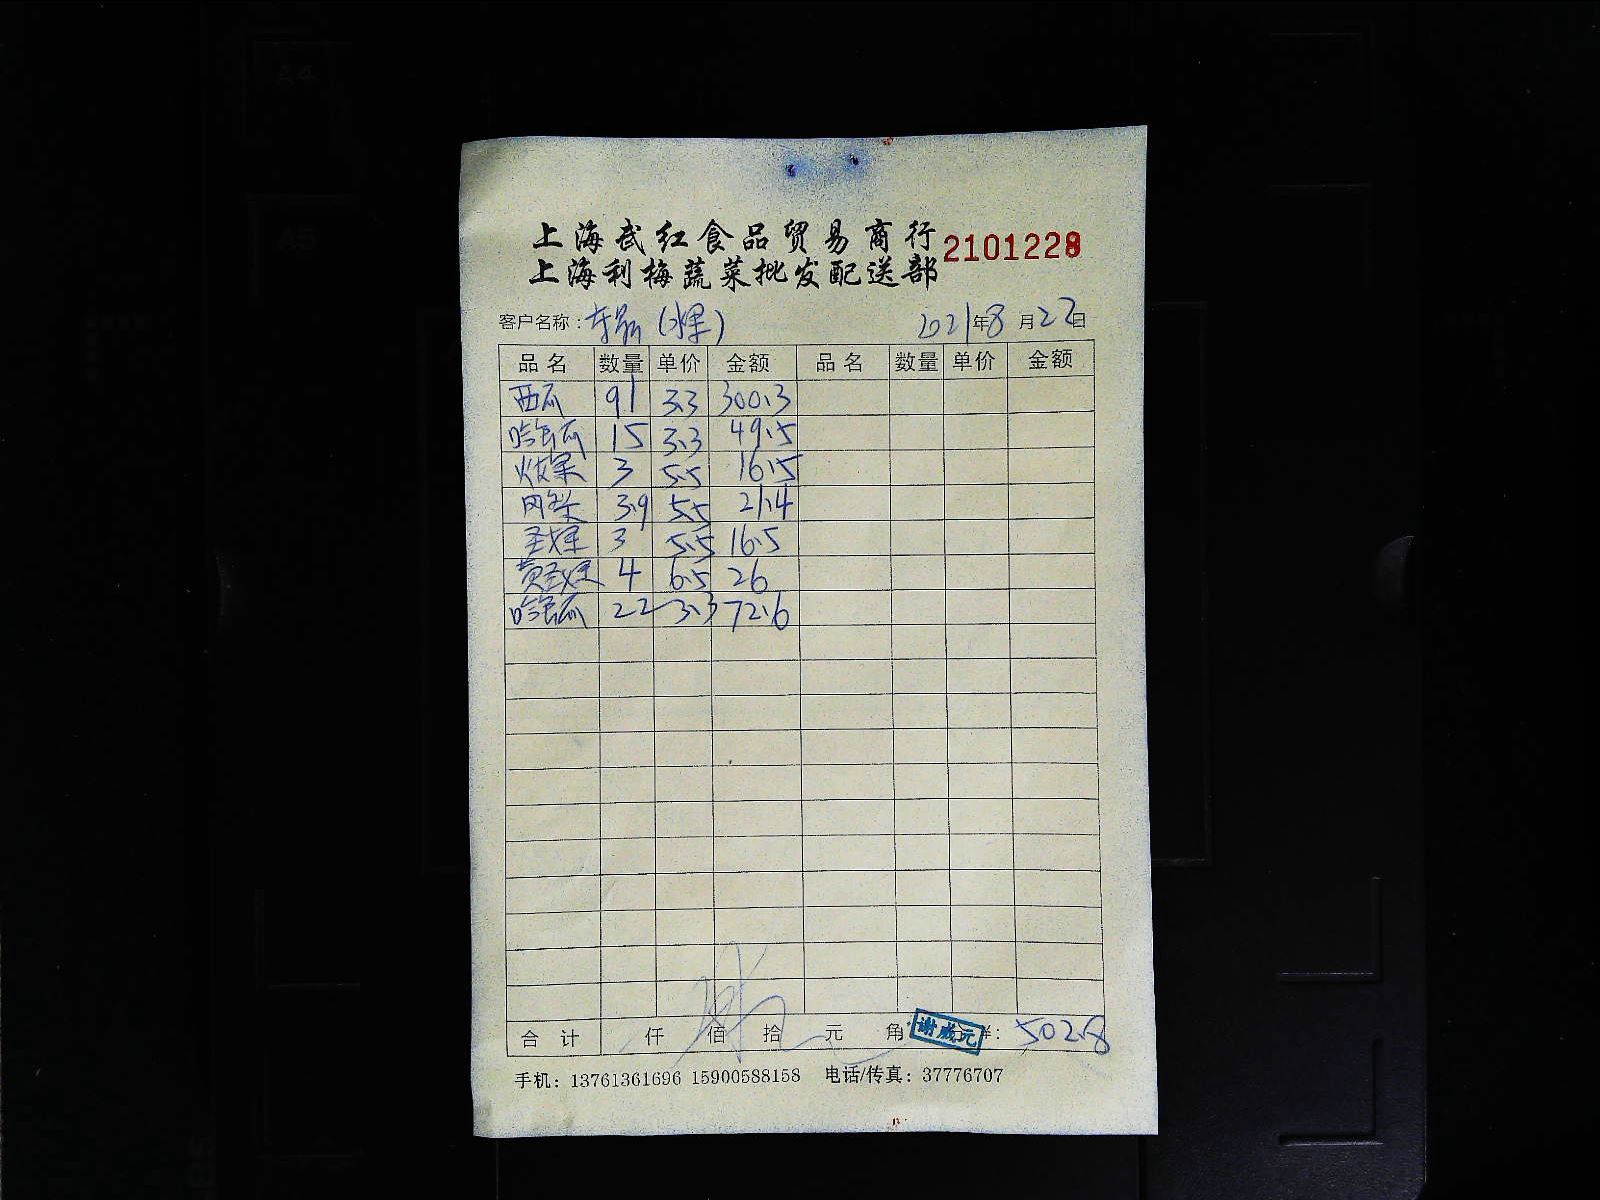 上海武红食品贸易商行
2101228
上海利梅蔬菜批发配送部
客户名称: (水果) 2021年8月22日
品名 数量 单价 金额 品名 数量 单价 金额
西瓜 91 3.3 300.3
哈密瓜 15 3.3 49.5
3 5.5 16.5
3.9 5.5 21.4
圣女果 3 5.5 16.5
黄圣女果 4 6.5 26
哈密瓜 22 3.3 72.6
合计 仟 佰 拾 元 角 ¥: 502.8
谢成元
手机: 13761361696 15900588158 电话/传真: 37776707